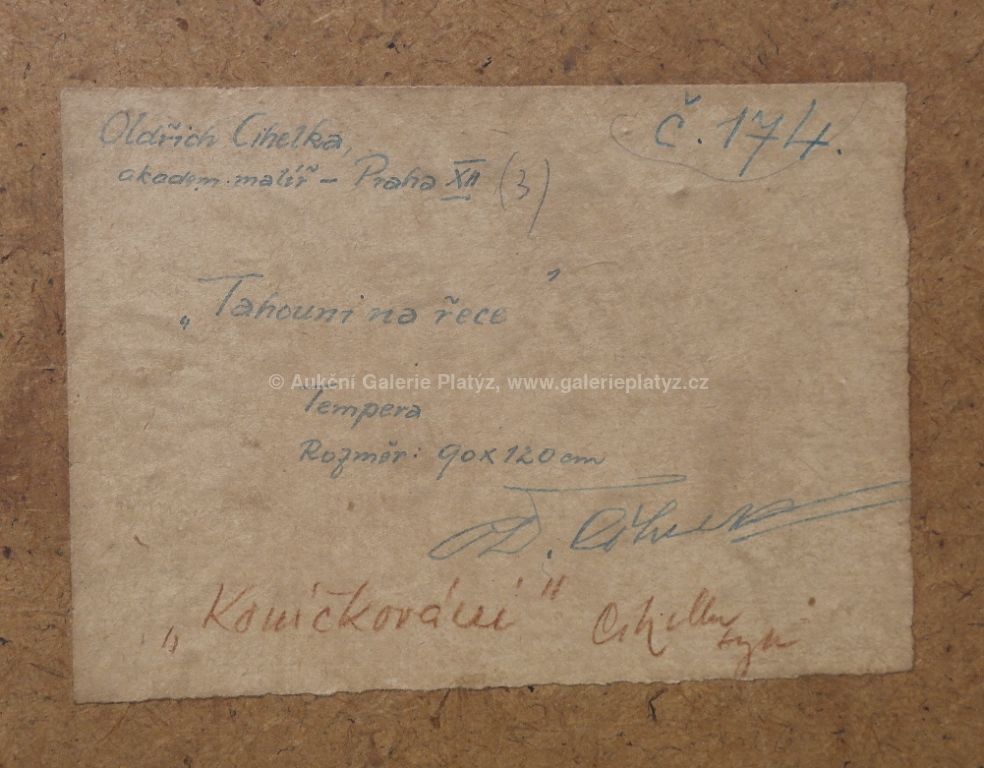 Oldřich Cihelka,
č. 174.
akadem. malíř – Praha XII (3)
„Tahouni na řece"
© Aukční Galerie Platýz, www.galerieplatyz.cz
Tempera
Rozměr: 90x120 cm
O. Cihelka
„Koníčkování" Cihelka syn